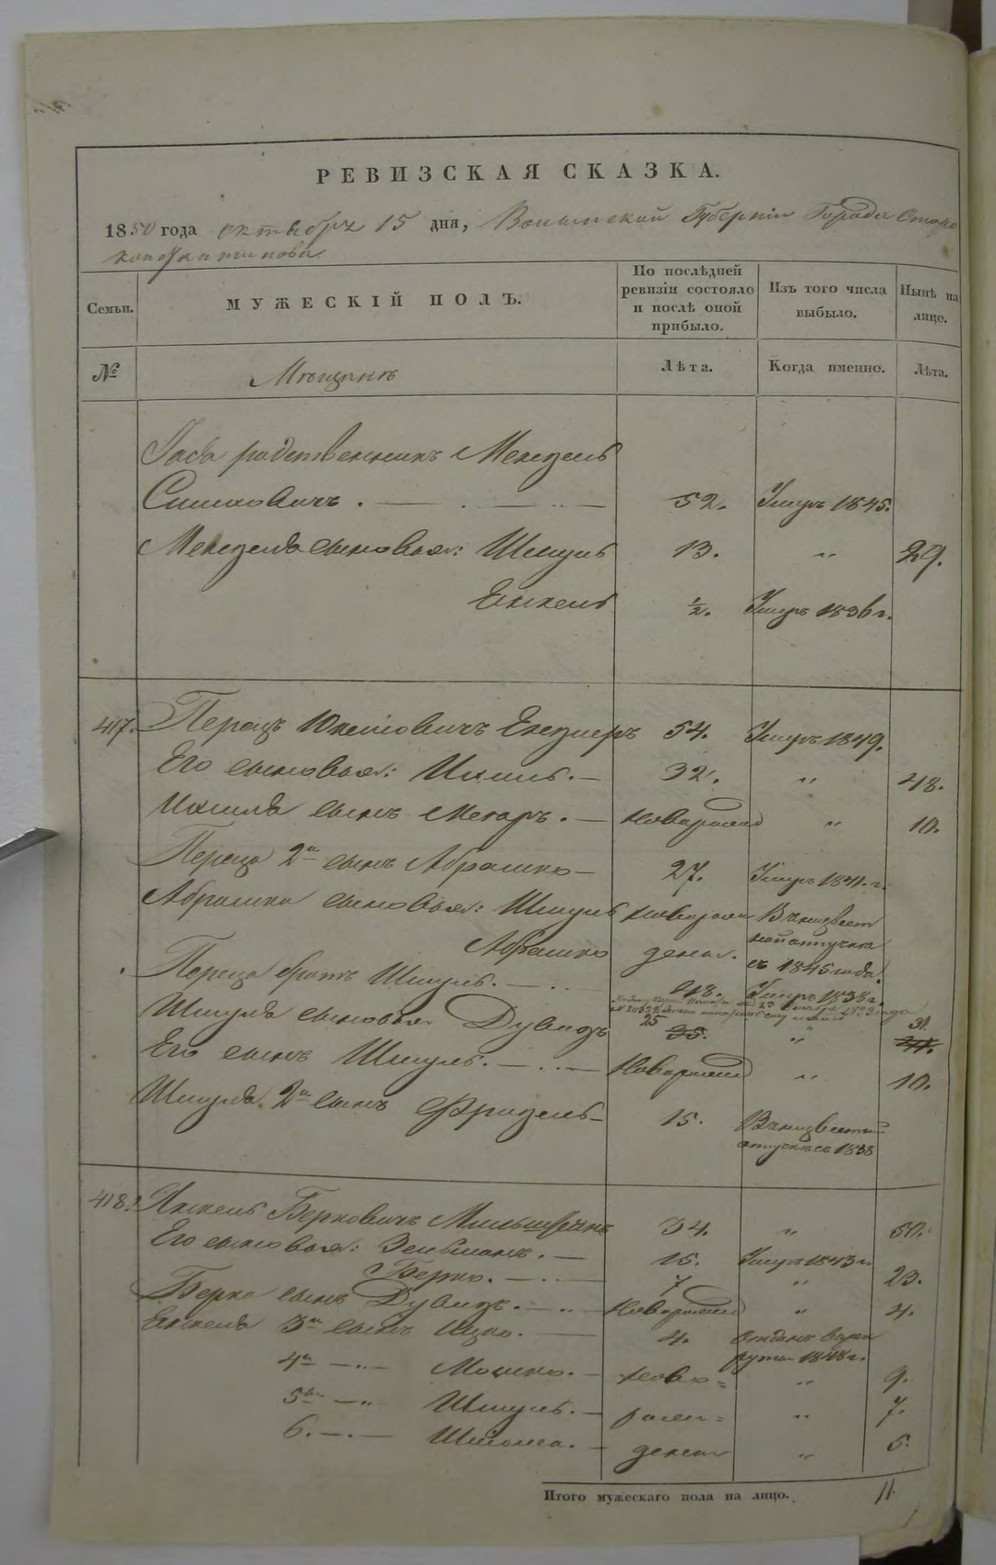 РЕВИЗСКАЯ СКАЗКА.
1850 года октября 15 дня, Волынской Губернiи Города Старо
константинова
Семьи. МУЖЕСКIЙ ПОЛЪ. По послѣдней ревизiи состояло и послѣ оной прибыло. Изъ того числа выбыло. Нынѣ на лицо.
№ Мѣщанъ Лѣта. Когда именно. Лѣта.
родственникъ Мендель
52. Умеръ 1845.
Менделя сыновья: Шмуль 13. „ 29.
Енкель ½. Умеръ 1836 г.
417. Перецъ 54. Умеръ 1849.
Его сыновья: Ихиль. 32. „ 48.
Ихиля сынъ Меторъ. новорожд „ 10.
Переца 2й сынъ Абрашко 27. Умеръ 1841 г.
Абрашка сыновья: Шмуль новорож Въ неизвест
Абрашко денн. ной отлучке
съ 1845 года.
Переца братъ Шмуль. 48. Умеръ 1838 г.
Шмуля сыновья Дувидъ 25 „ 31.
Его сынъ Шмуль. Новорожд „ 10.
Шмуля 2й сынъ Фридель 15. Въ неизвестной
отлучке съ 1838
418. Янкель Берковичъ 34. „ 50.
Его сыновья: Зельманъ. 15. Умеръ 1843 г.
Берко. 7 „ 23.
Берка сынъ Дувидъ. Новорожд „ 4.
Енкеля 3й сынъ Ицко. 4. отданъ въ рек
руты 1848 г.
4й „ Мошко. ново= „ 9.
5й „ Шмуль. рож= „ 7.
6. „ Шлiома. денн „ 5.
Итого мужескаго пола на лицо. 11.